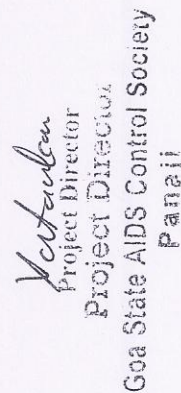 Project Director
Project Director
Goa State AIDS Control Society
Panaji